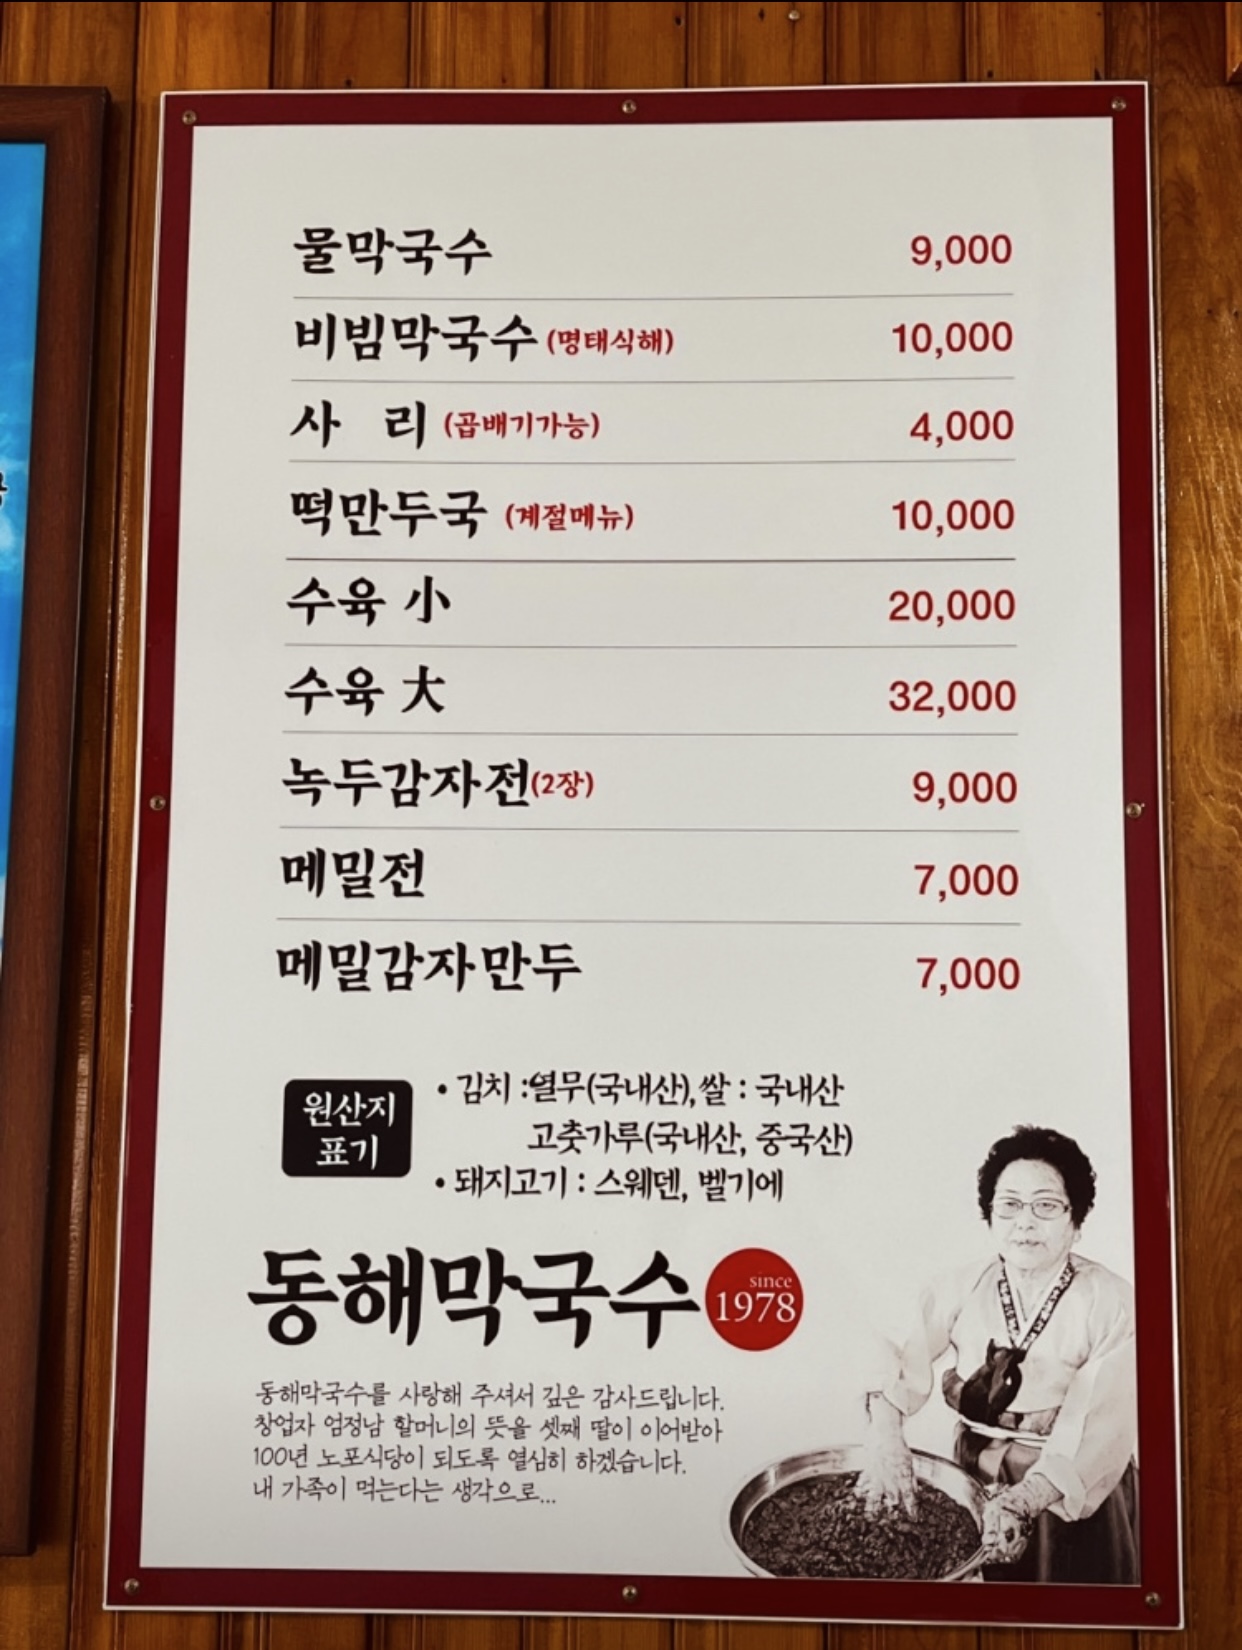 물막국수 9,000
비빔막국수 (명태식해) 10,000
사 리 (곱배기가능) 4,000
떡만두국 (계절메뉴) 10,000
수육 小 20,000
수육 大 32,000
녹두감자전(2장) 9,000
메밀전 7,000
메밀감자만두 7,000
원산지
표기
• 김치 :열무(국내산),쌀 : 국내산
고춧가루(국내산, 중국산)
• 돼지고기 : 스웨덴, 벨기에
동해막국수 since
1978
동해막국수를 사랑해 주셔서 깊은 감사드립니다.
창업자 엄정남 할머니의 뜻을 셋째 딸이 이어받아
100년 노포식당이 되도록 열심히 하겠습니다.
내 가족이 먹는다는 생각으로...